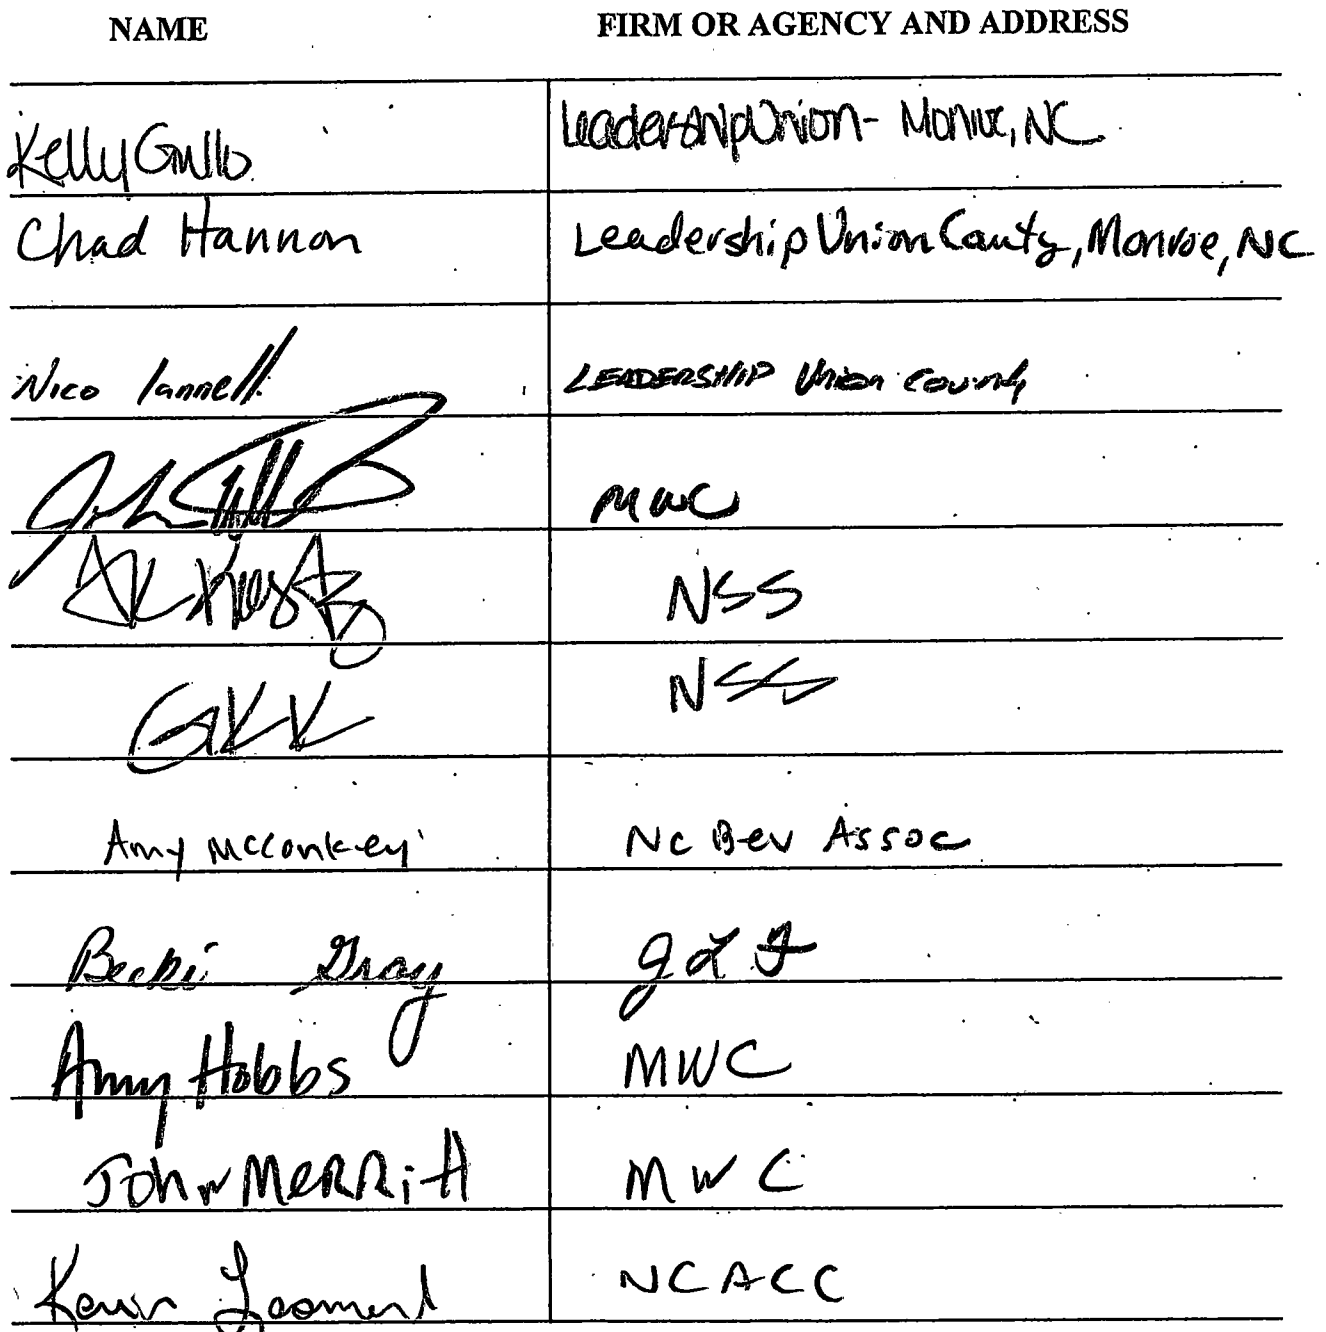 NAME FIRM OR AGENCY AND ADDRESS
Kelly Gullo Leadership Union - Monroe, NC
Chad Hannon Leadership Union County, Monroe, NC
Nico Iannelli LEADERSHIP Union County
John MWC
NSS
GKK NSS
Amy McConkey NC Bev Assoc
Becki Gray JLF
Amy Hobbs MWC
JOHN MERRiTT MWC
Kevin NCACC